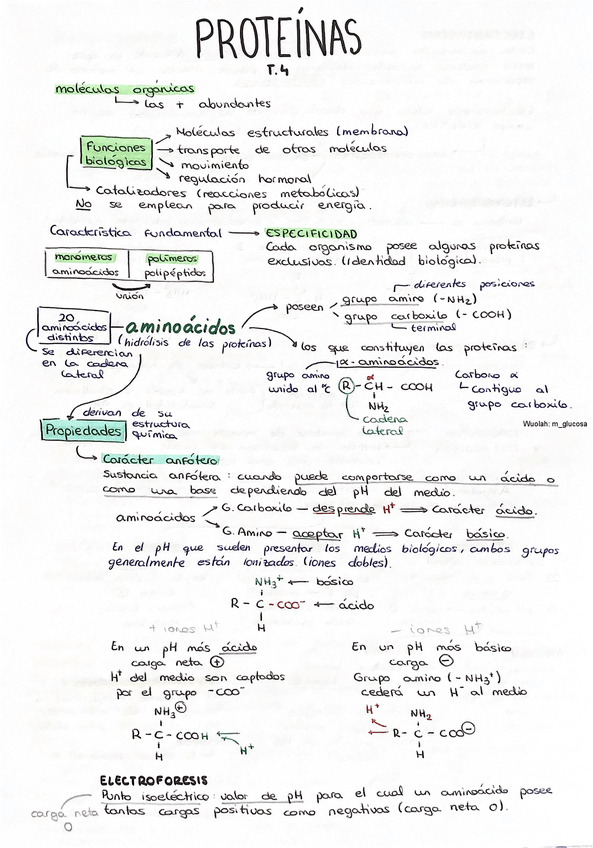 PROTEÍNAS
T.4
moléculas orgánicas
las + abundantes
Funciones biológicas
Moléculas estructurales (membrana)
transporte de otras moléculas
movimiento
regulación hormonal
Catalizadores (reacciones metabólicas)
No se emplean para producir energía.
Característica fundamental → ESPECIFICIDAD
Cada organismo posee algunas proteínas
exclusivas. (Identidad biológica).
monómeros | polímeros
aminoácidos | polipéptidos
unión
20
aminoácidos
distintos
Se diferencian
en la cadena
lateral
aminoácidos
(hidrólisis de las proteínas)
poseen
diferentes posiciones
grupo amino (-NH₂)
grupo carboxilo (-COOH)
terminal
los que constituyen las proteínas:
α-aminoácidos.
grupo amino
unido al αC
α
R - CH - COOH
NH₂
cadena
lateral
Carbono α
contiguo al
grupo carboxilo.
Wuolah: m_glucosa
derivan de su
estructura
química
Propiedades
Carácter anfótero
Sustancia anfótera: cuando puede comportarse como un ácido o
como una base dependiendo del pH del medio.
aminoácidos
G. Carboxilo - desprende H⁺ ⟹ Carácter ácido.
G. Amino - aceptar H⁺ ⟹ Carácter básico.
En el pH que suelen presentar los medios biológicos, ambos grupos
generalmente están ionizados. (iones dobles).
NH₃⁺ ← básico
R - C - COO⁻ ← ácido
H
+ iones H⁺
En un pH más ácido
carga neta ⊕
H⁺ del medio son captados
por el grupo -COO⁻
NH₃⊕
R - C - COOH
H
H⁺
- iones H⁺
En un pH más básico
carga ⊖
Grupo amino (-NH₃⁺)
cederá un H⁻ al medio
H⁺
NH₂
R - C - COO⊖
H
ELECTROFORESIS
Punto isoeléctrico: valor de pH para el cual un aminoácido posee
tantas cargas positivas como negativas (carga neta 0).
carga neta
0